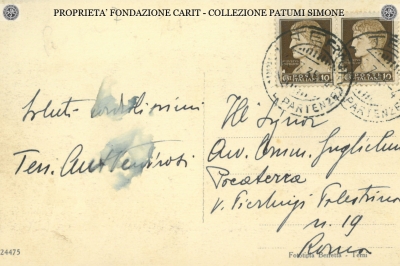 PROPRIETA' FONDAZIONE CARIT - COLLEZIONE PATUMI SIMONE
10 POSTE ITALIANE 10
TERNI
PARTENZA
PARTENZE
Saluti cordialissimi
Ten.
Ill Signor
Avv. Comm. Guglielmo
Pocaterra
V. Pierluigi Palestrina
n. 19
Roma
24475
Fototipia Beretta - Terni